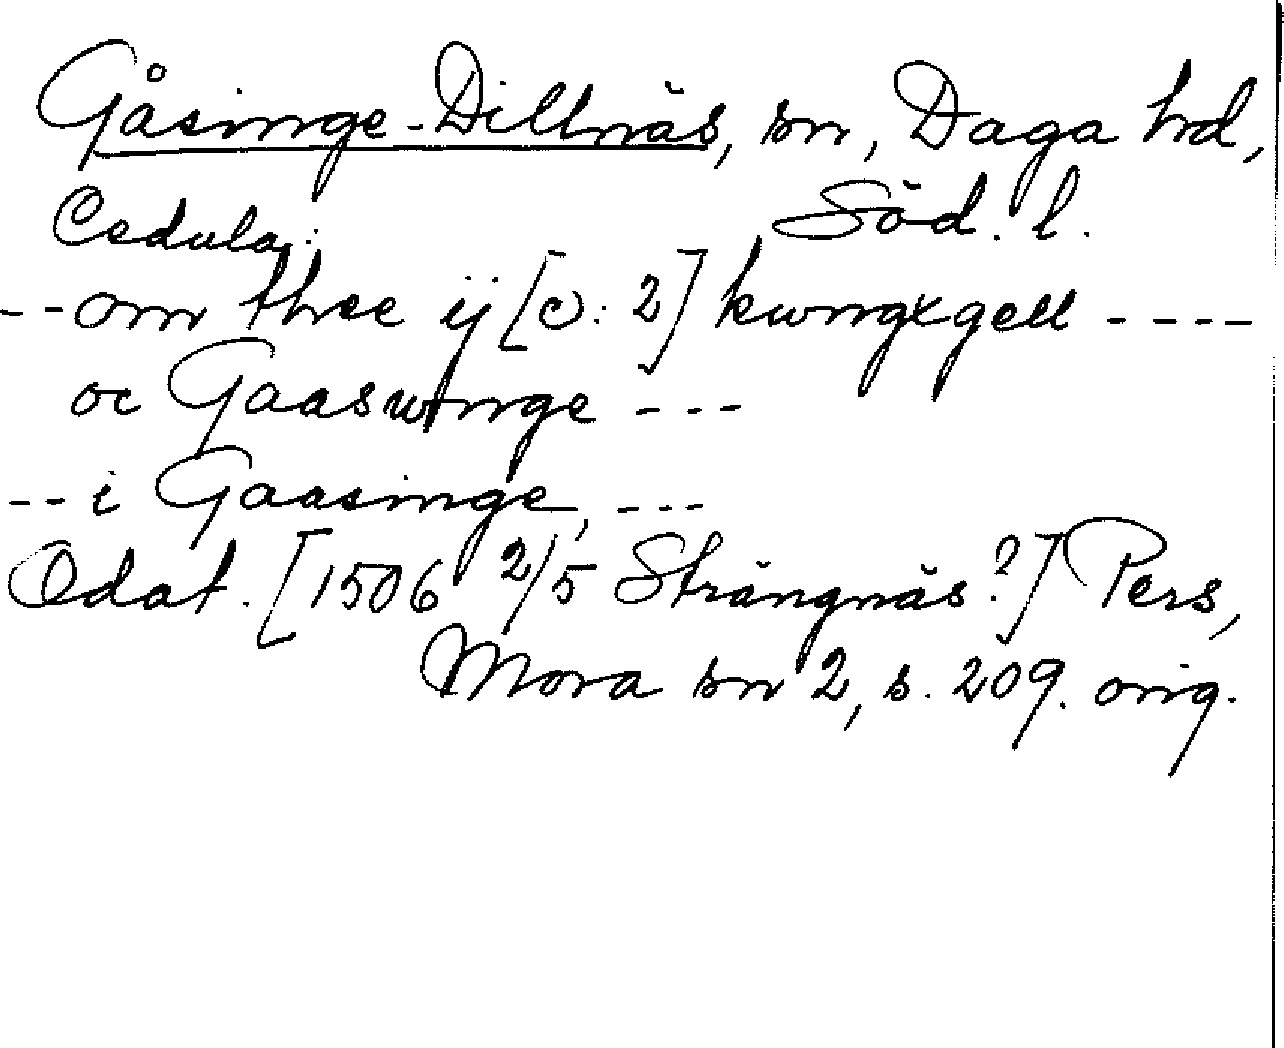 Gåsinge-Dillnäs, sn, Daga hd,
Cedula: Söd. l.
--om thee ij [ɔ: 2] kwngxgell ----
oc Gaaswnge ---
-- i Gaasinge, ---
Odat. [1506 2/5 Strängnäs?] Pers,
Mora sn 2, s. 209. orig.